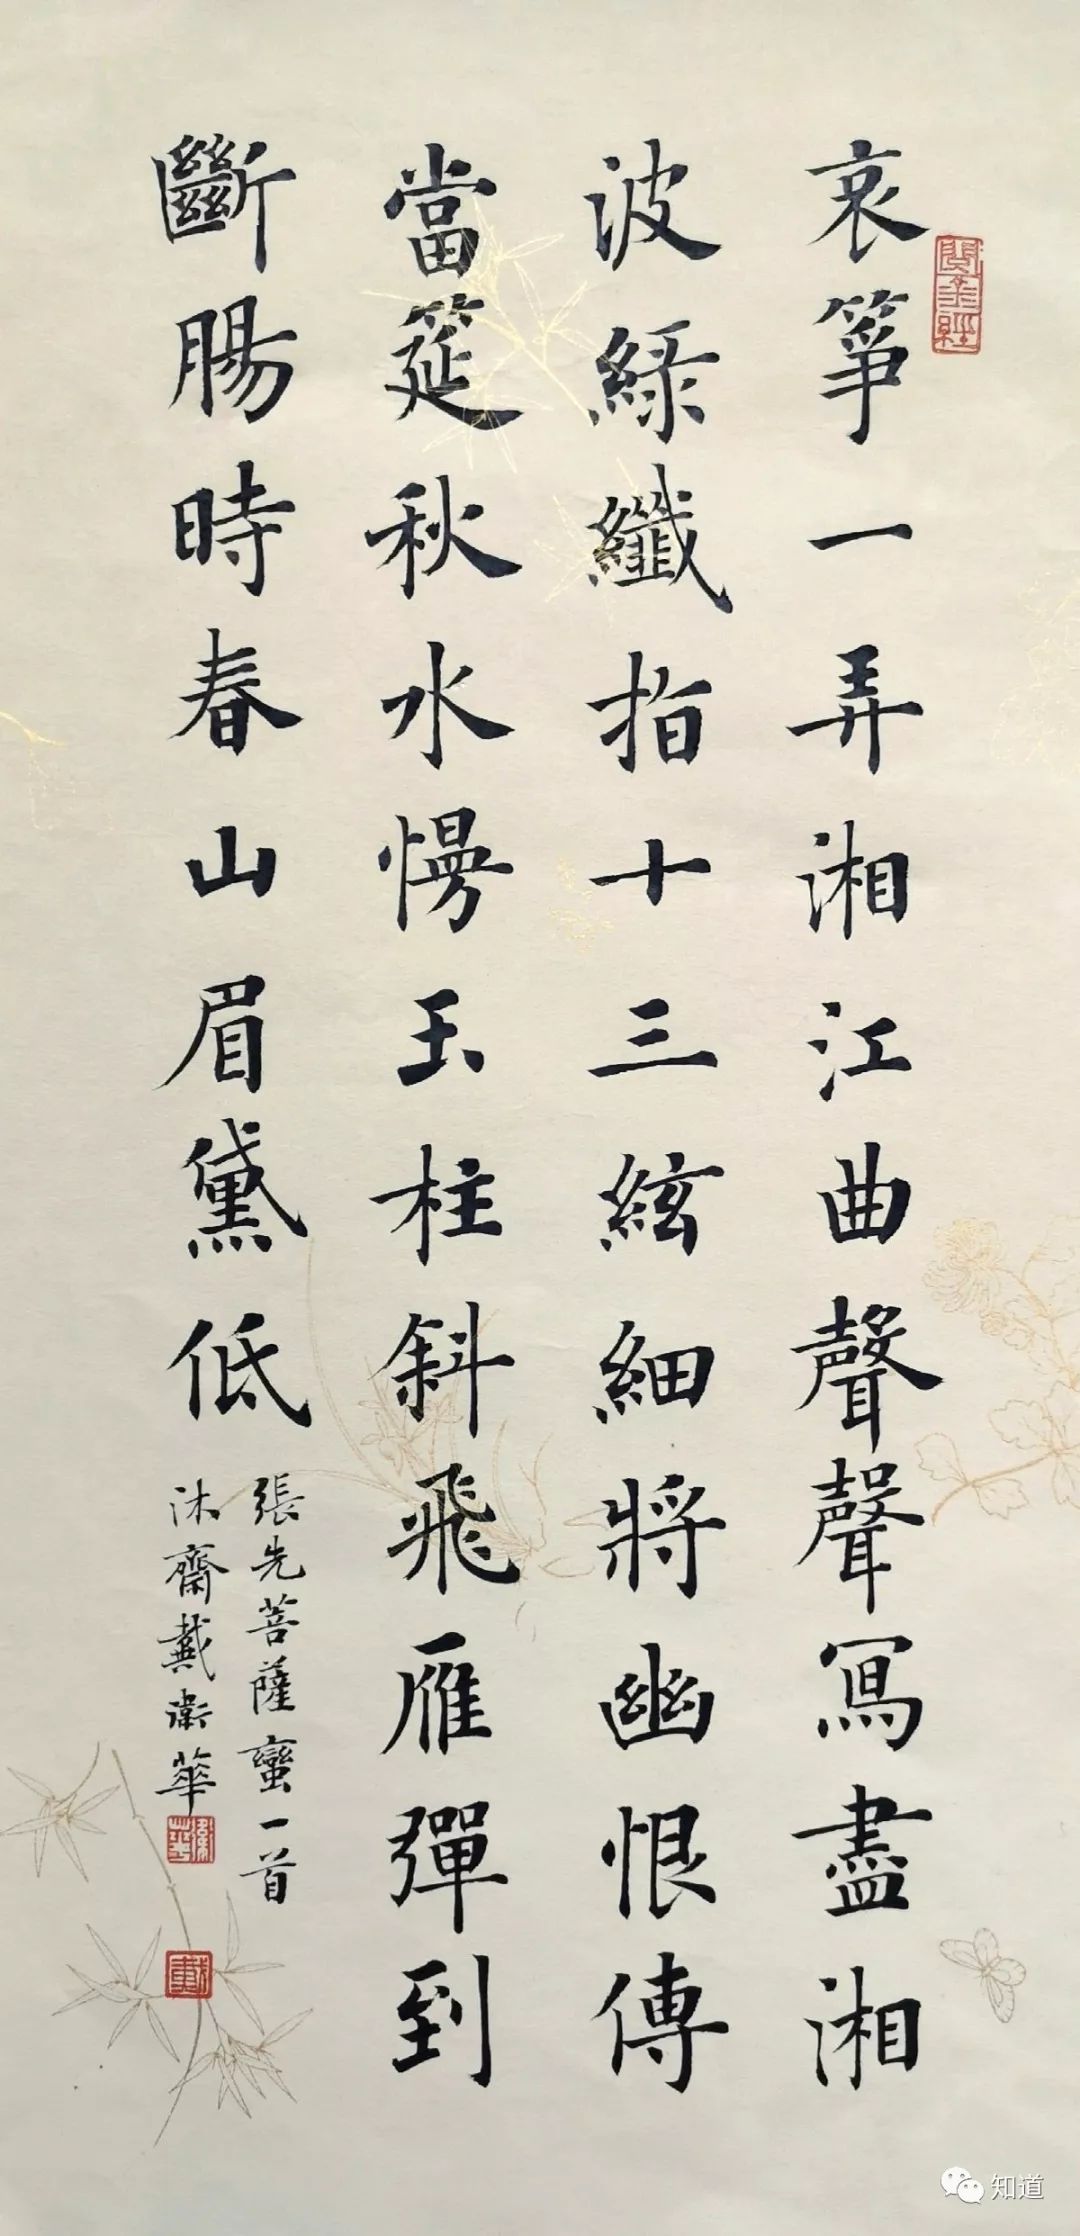 哀箏一弄湘江曲聲聲寫盡湘
波綠纖指十三絃細將幽恨傳
當筵秋水慢玉柱斜飛雁彈到
斷腸時春山眉黛低
張先菩薩蠻一首
沐齋戴衛華
知道